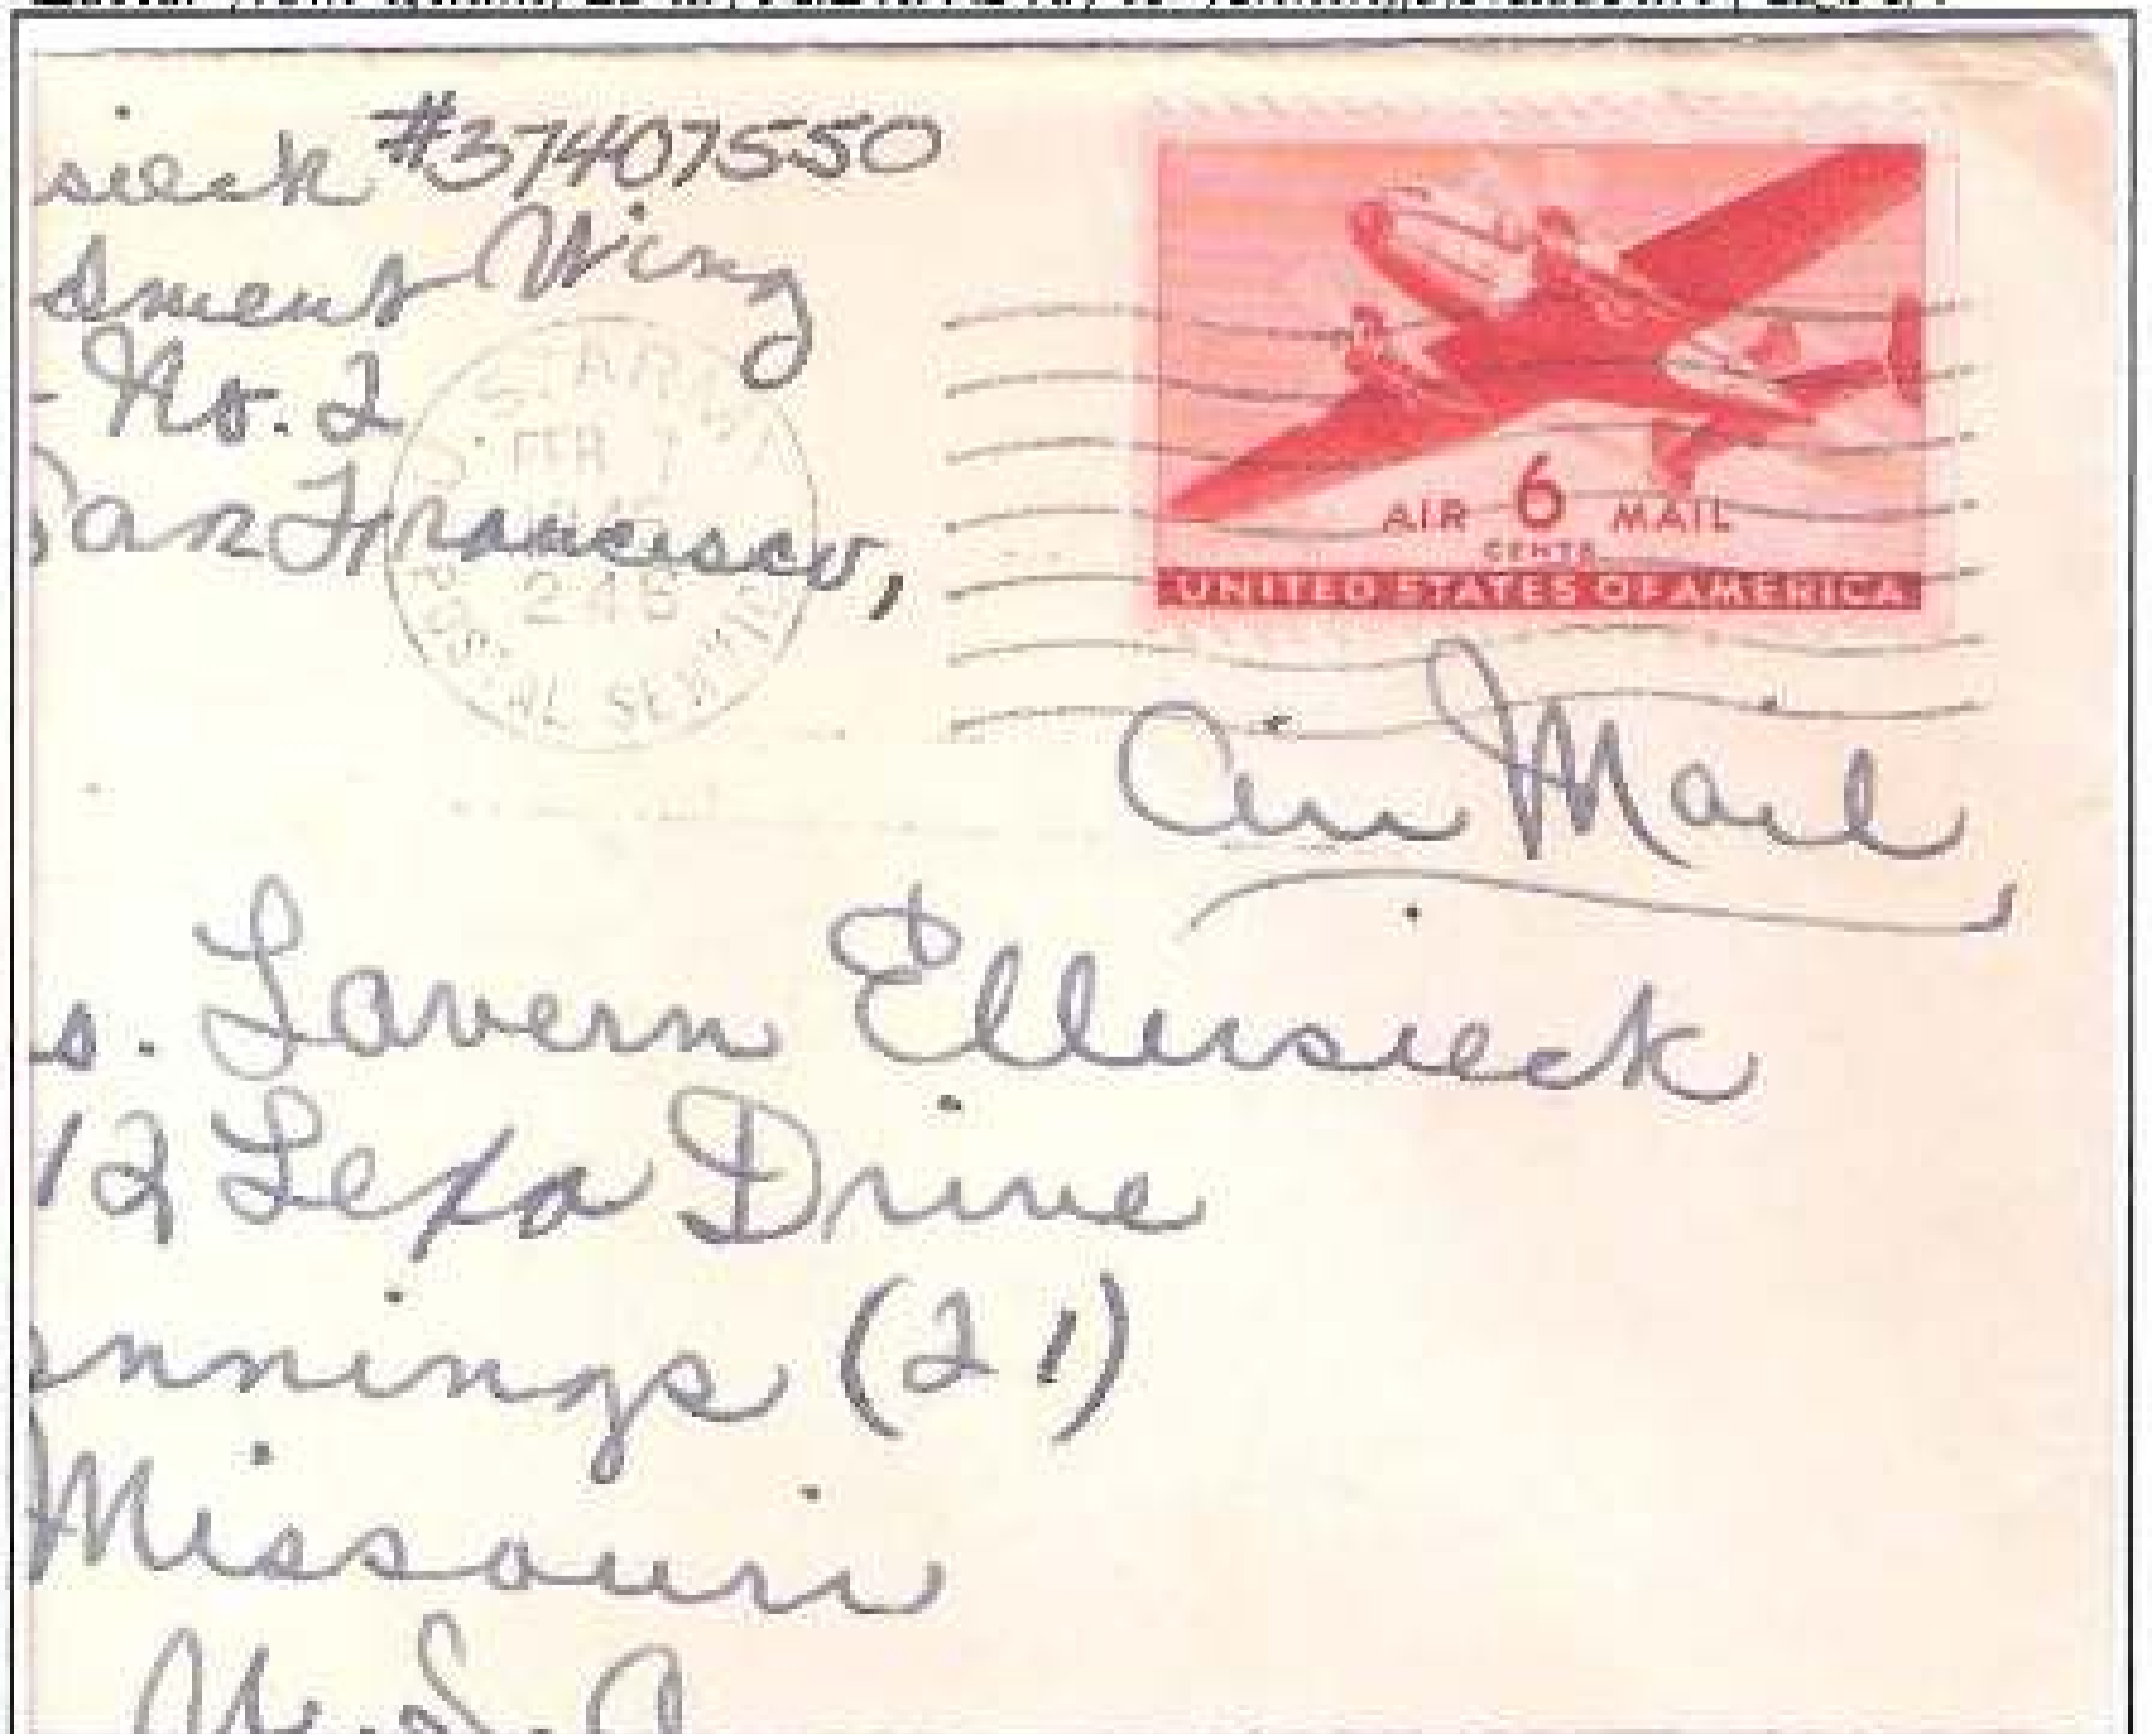 sieck #37407550
dment Wing
- No. 2
San Francisco,
U.S. ARMY
FEB 7
POSTAL SERVICE
AIR 6 MAIL
CENTS
UNITED STATES OF AMERICA
Air Mail
s. Lavern Ellersieck
12 Lexa Drive
ennings (21)
Missouri
U.S.A.